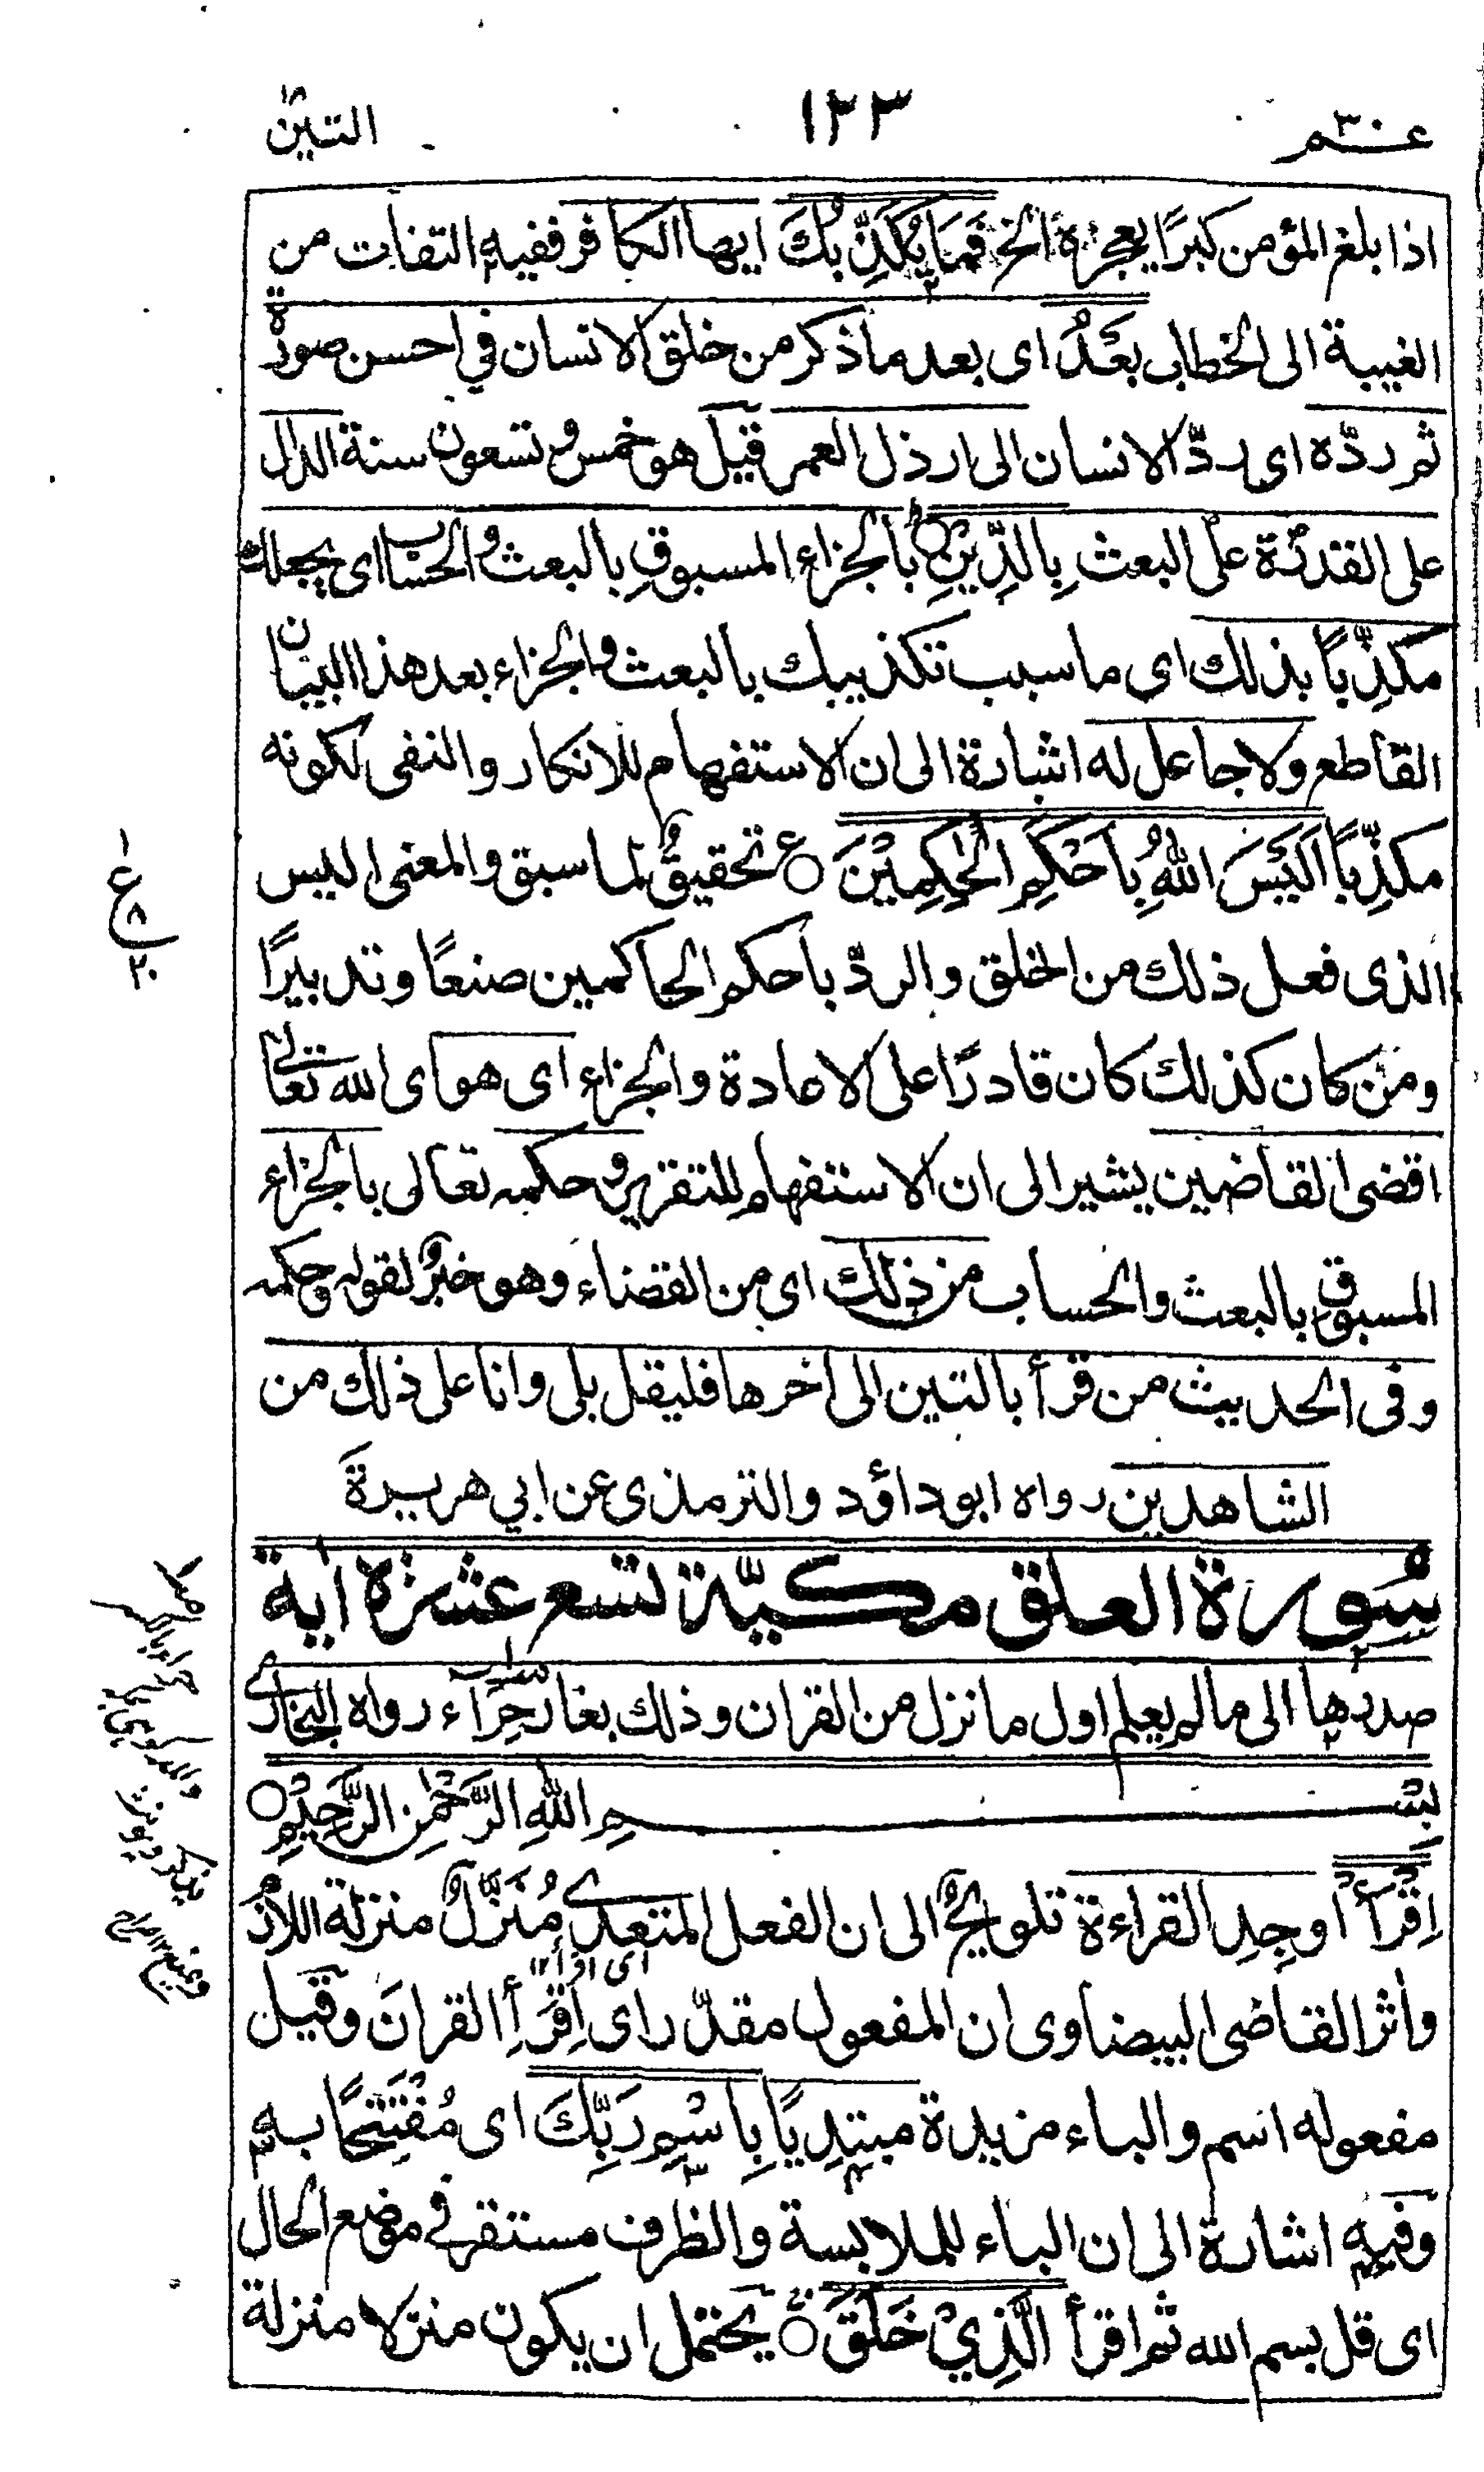 عـــم ٣٠
١٢٣
التين
اذا بلغ المؤمن كبرًا يعجزهٗ الخ فَمَا يُكَذِّبُكَ ايها الكافر ففيه التفات من
الغيبة الى الخطاب بَعْدُ اى بعد ما ذكر من خلق الانسان فى احسن صورة
ثم ردّه اى ردّ الانسان الى ارذل العمر قيل هو خمس و تسعون سنة الدال
على القدرة على البعث بِالدِّيْنِ بالجزاء المسبوق بالبعث و الحساب اى يجعلك
مكذِّبًا بذلك اى ما سبب تكذيبك بالبعث و الجزاء بعد هذا البيان
القاطع و لا جاعل له اشارة الى ان الاستفهام للانكار و النفى لكونه
مكذّبًا اَلَيْسَ اللّٰهُ بِاَحْكَمِ الْحٰكِمِيْنَ ○ع تحقيقٌ لما سبق و المعنى اليس
الذى فعل ذلك من الخلق و الردّ باحكم الحاكمين صنعًا و تدبيرًا
و من كان كذلك كان قادرًا على الاعادة و الجزاء اى هو اى الله تعالى
اقضى القاضين يشير الى ان الاستفهام للتقرير و حكمه تعالى بالجزاء
المسبوق بالبعث و الحساب من ذلك اى من القضاء و هو خبرٌ لقوله و حكمه
و فى الحديث من قرأ بالتين الى اٰخرها فليقل بلى و انا على ذلك من
الشاهدين رواه ابوداؤد و الترمذى عن ابي هريرة
سُورة العلق مكيّة تسع عشرة اٰية
صدرها الى ما لم يعلم اول ما نزل من القران و ذلك بغار حِرَآء رواه البخارى
بِسْــــــمِ اللّٰهِ الرَّحْمٰنِ الرَّحِيْمِ ○
اِقْرَأْ اوجِدِ القراءة تلويحٌ الى ان الفعل المتعدى مُنَزَّلٌ منزلة اللازم
اى اقرأ ١٢
و اٰثر القاضى البيضاوى ان المفعول مقدّر اى اِقْرَأ القراٰنَ و قيل
مفعوله اسم و الباء مزيدة مبتدِيًا بِاسْمِ رَبِّكَ اى مُفْتَتِحًا به
و فيه اشارة الى ان الباء للملابسة و الظرف مستقر في موضع الحال
اى قل بسم الله ثم اقرأ الَّذِيْ خَلَقَ ○ يحتمل ان يكون منزلا منزلة
ع
٢٠